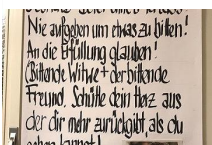 Nie aufgeben um etwas zu bitten!
An die Erfüllung glauben!
(Bittende Witwe + der bittende
Freund. Schütte dein Herz aus
der dir mehr zurückgibt, als du